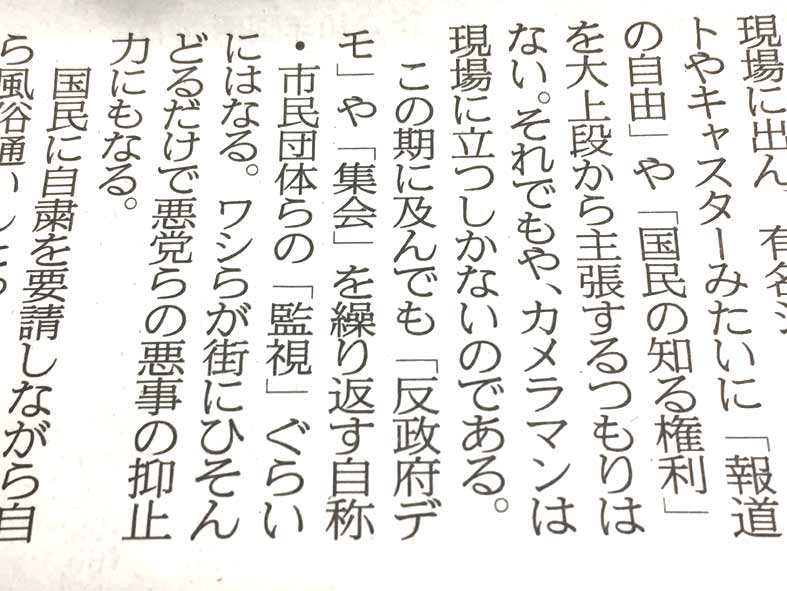 現場に出ん、有名ジ
トやキャスターみたいに「報道
の自由」や「国民の知る権利」
を大上段から主張するつもりは
ない。それでもや、カメラマンは
現場に立つしかないのである。
この期に及んでも「反政府デ
モ」や「集会」を繰り返す自称
・市民団体らの「監視」ぐらい
にはなる。ワシらが街にひそん
どるだけで悪党らの悪事の抑止
力にもなる。
国民に自粛を要請しながら自
ら風俗通い